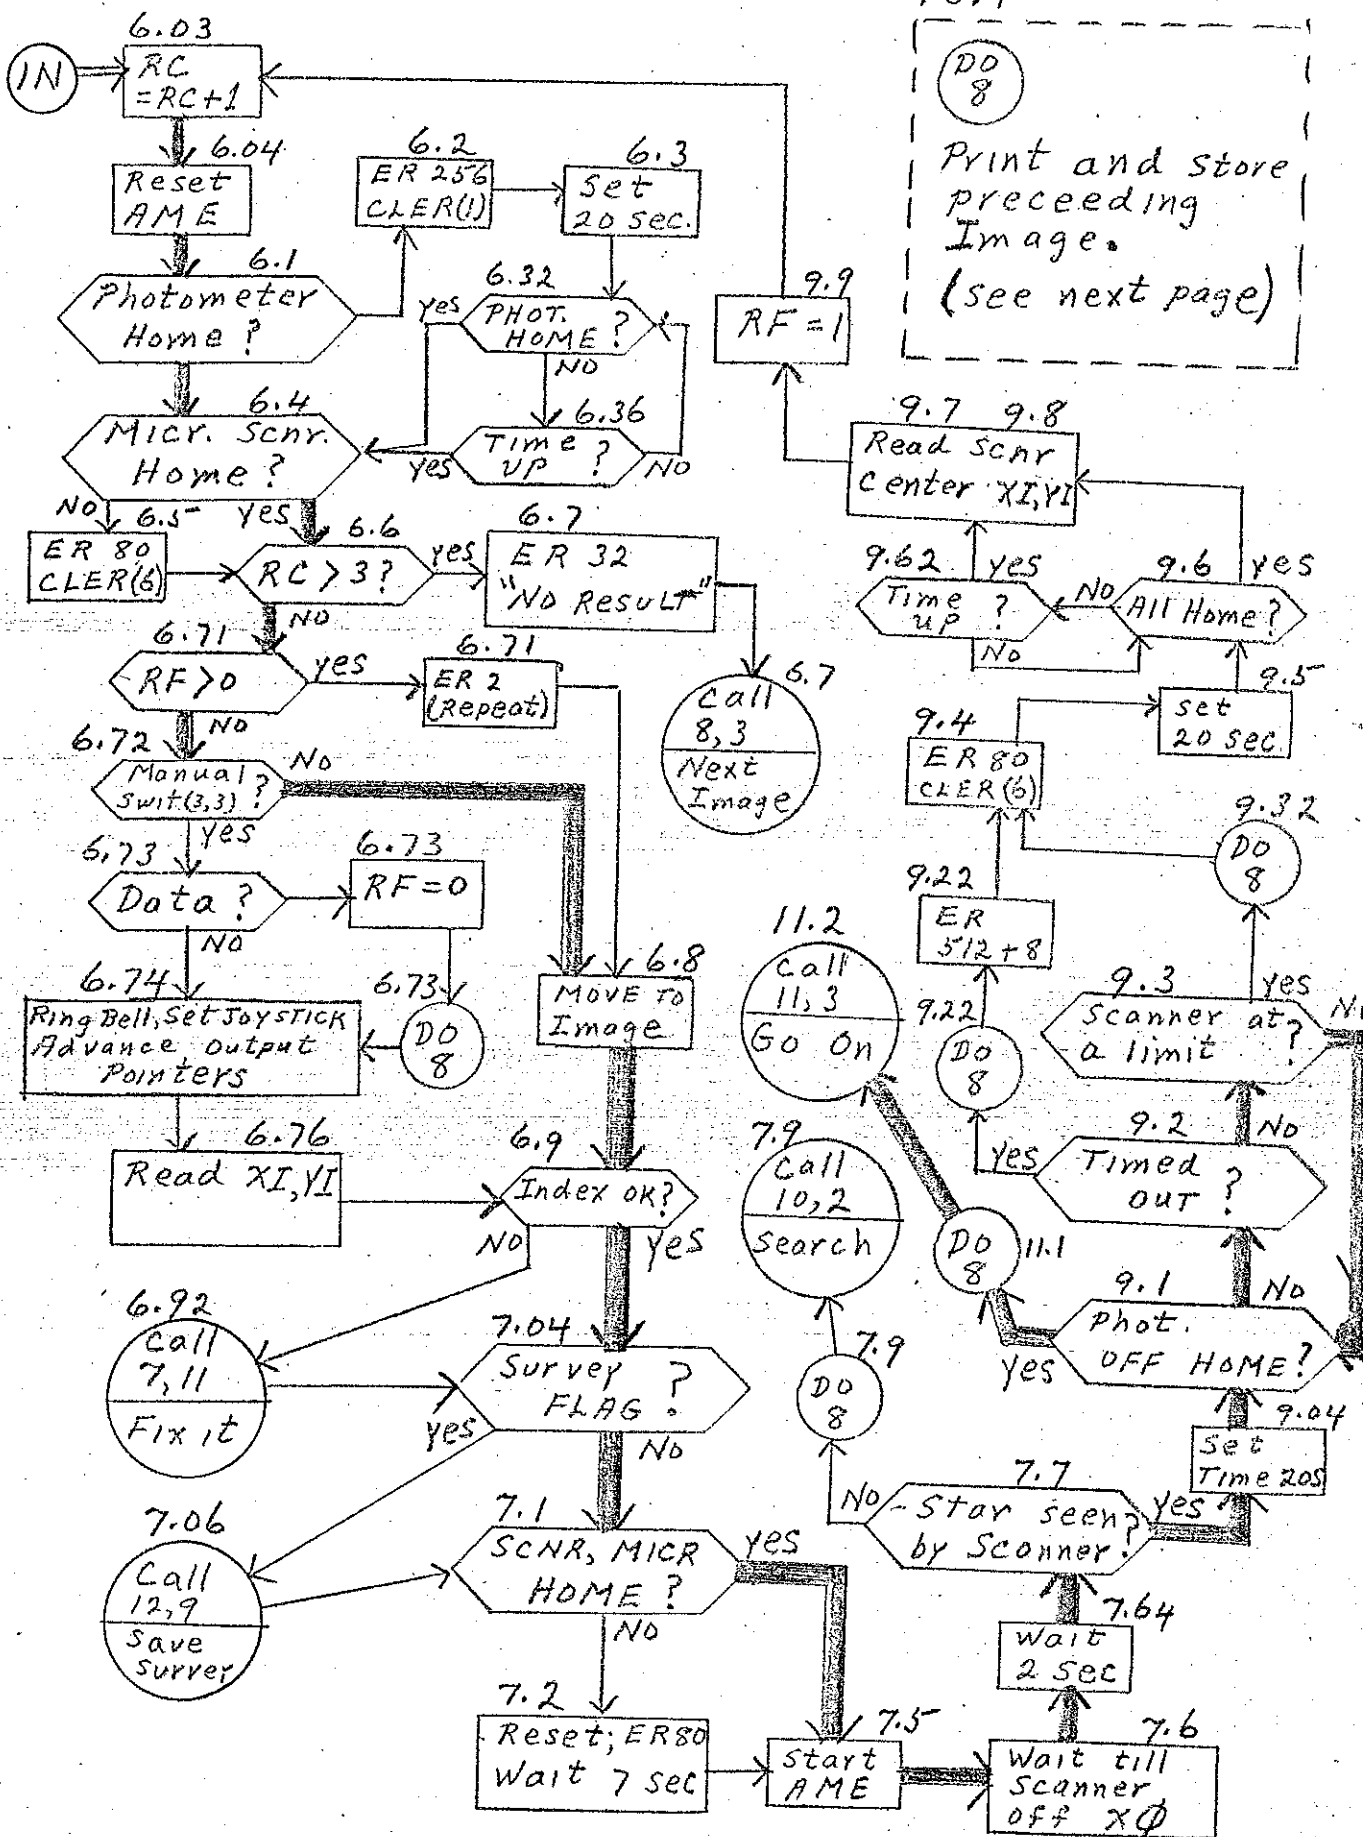 6.03
IN
RC
=RC+1
6.04
Reset
AME
6.1
Photometer
Home?
6.2
ER 256
CLER(1)
6.3
Set
20 sec.
6.32
PHOT.
HOME?
yes
NO
6.36
Time
UP?
yes
NO
6.4
Micr. Scnr.
Home?
NO
yes
6.5
ER 80,
CLER(6)
6.6
RC > 3?
yes
NO
6.7
ER 32
"NO RESULT"
6.7
Call
8,3
Next
Image
6.71
RF>0
yes
NO
6.71
ER 2
(Repeat)
6.72
Manual
Swit(3,3)?
No
yes
6.73
Data?
NO
6.73
RF=0
6.73
DO
8
6.74
Ring Bell, Set JOYSTICK
Advance output
Pointers
6.76
Read XI,YI
6.8
MOVE TO
Image
6.9
Index OK?
NO
yes
6.92
Call
7,11
Fix it
7.04
Survey
FLAG?
yes
NO
7.06
Call
12,9
Save
surver
7.1
SCNR, MICR
HOME?
yes
NO
7.2
Reset; ER80
Wait 7 sec
7.5
Start
AME
7.6
Wait till
Scanner
off XØ
7.64
Wait
2 sec
7.7
Star seen
by Scanner?
NO
yes
7.9
DO
8
7.9
Call
10,2
Search
9.04
Set
Time 20S
9.1
Phot.
OFF HOME?
yes
NO
11.1
DO
8
11.2
Call
11,3
Go On
9.2
Timed
OUT?
yes
NO
9.22
DO
8
9.22
ER
512+8
9.3
Scanner at
a limit?
yes
9.32
DO
8
9.4
ER 80
CLER(6)
9.5
set
20 sec.
9.6
All Home?
yes
NO
9.62
Time
up?
yes
NO
9.7 9.8
Read Scnr
Center XI,YI
9.9
RF=1
DO
8
Print and Store
preceeding
Image.
(see next page)